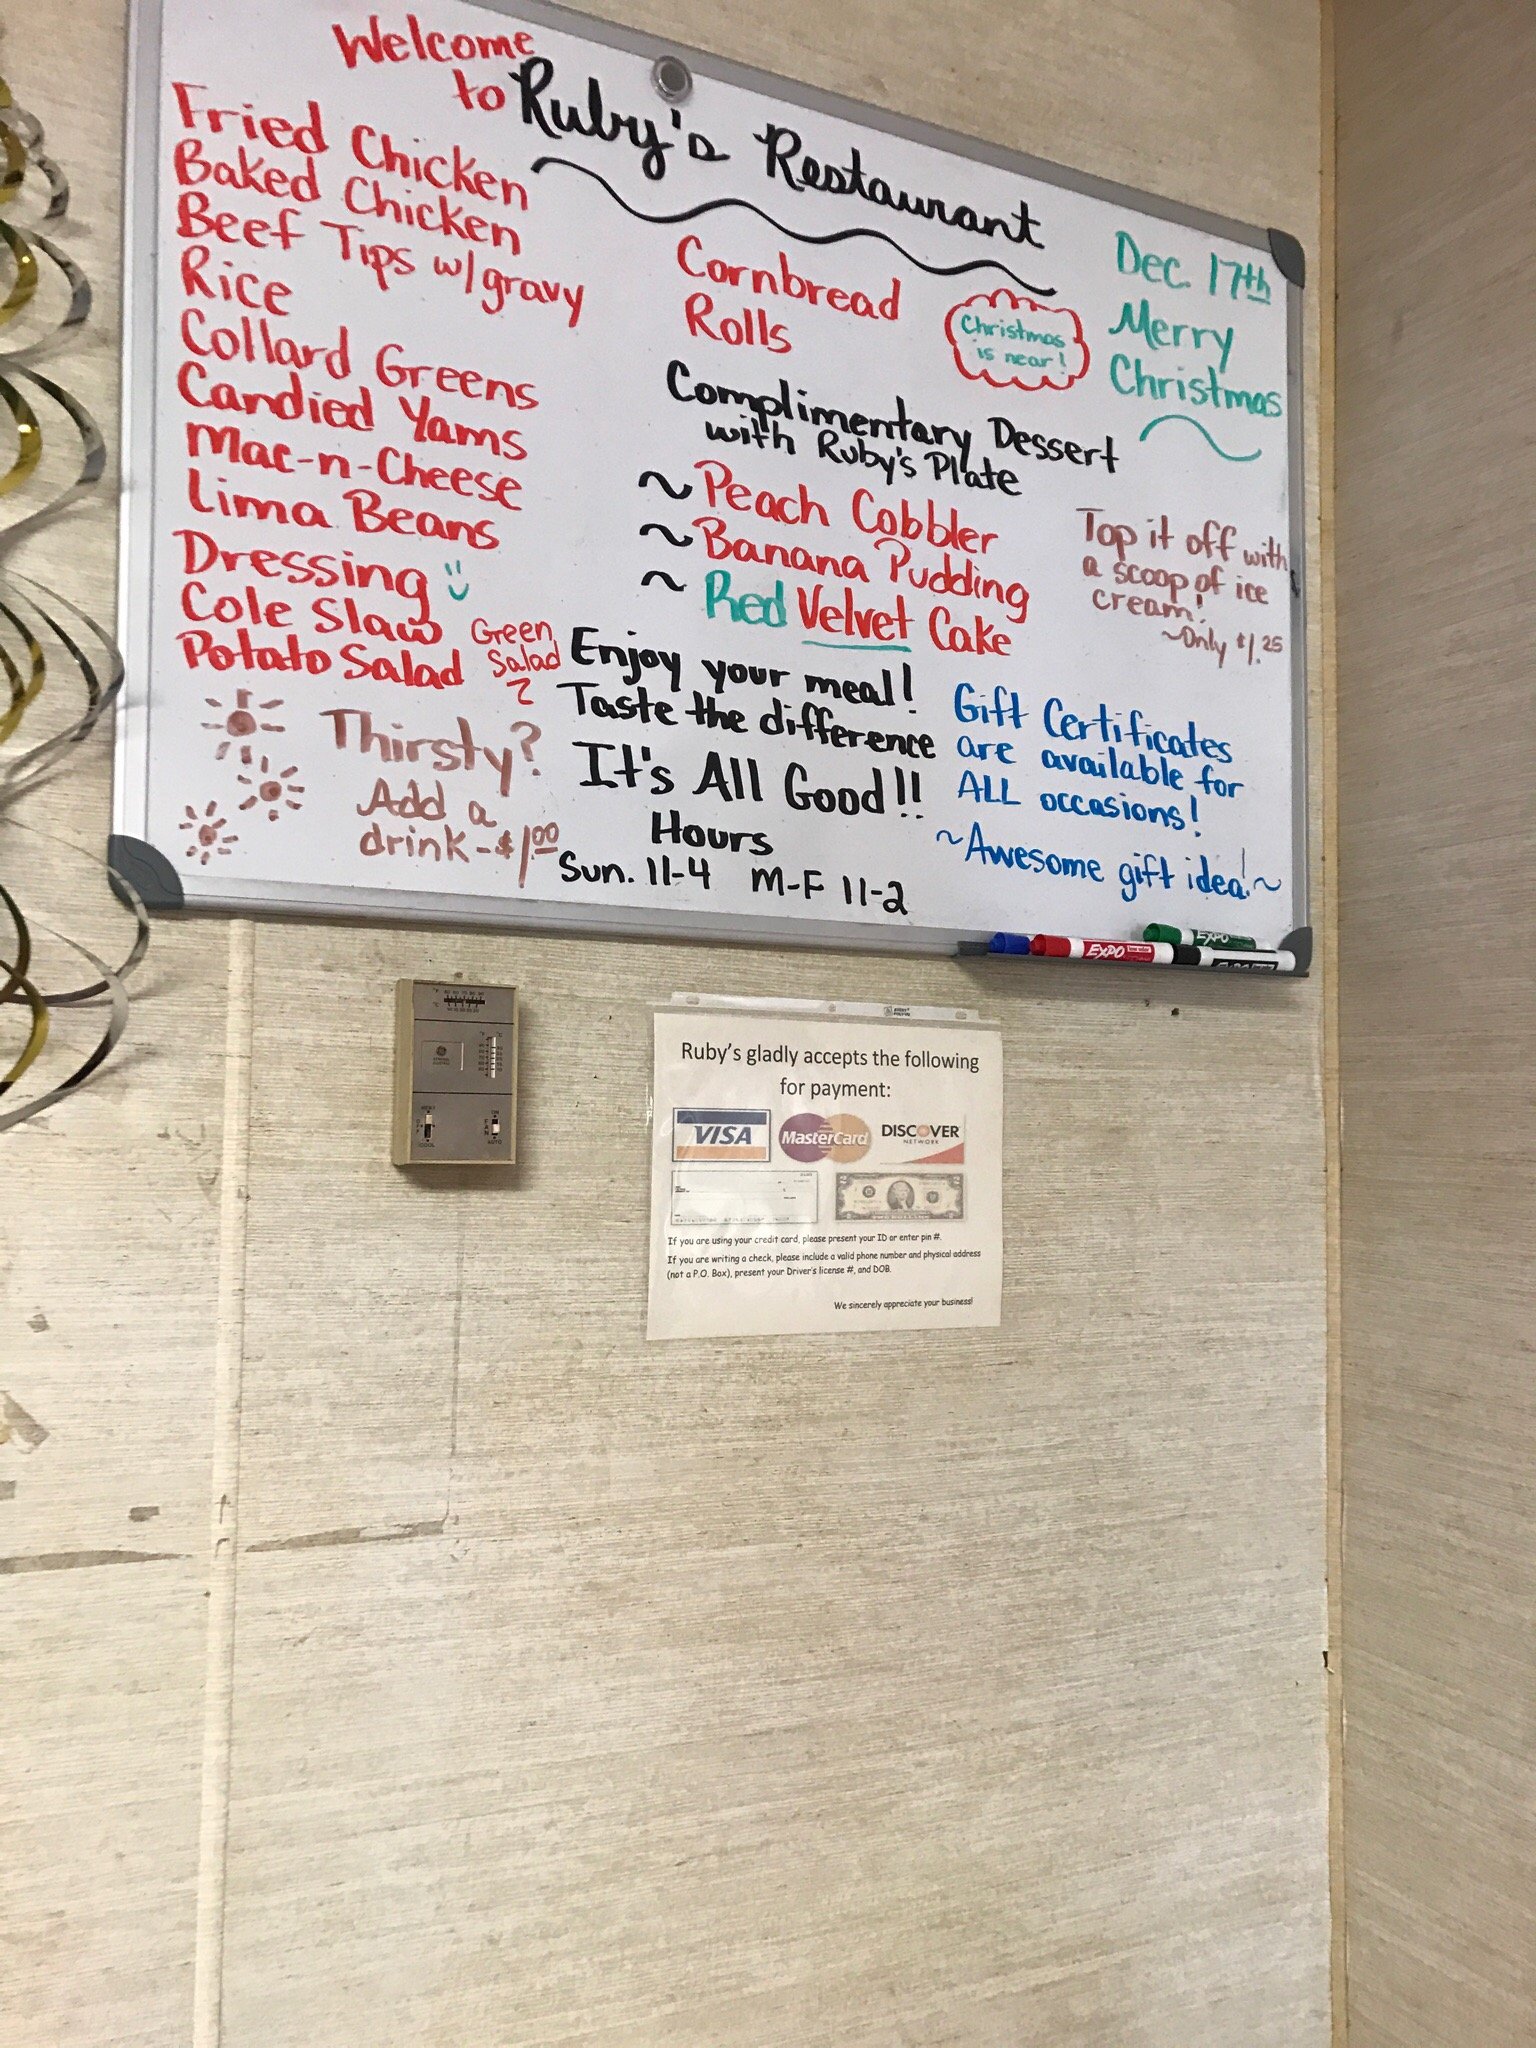 Welcome
to Ruby's Restaurant
Fried Chicken
Baked Chicken
Beef Tips w/gravy
Rice
Collard Greens
Candied Yams
Mac-n-Cheese
Lima Beans
Dressing
Cole Slaw
Potato Salad
Green
Salad
Thirsty?
Add a
drink - $1.00
Cornbread
Rolls
Christmas
is near!
Dec. 17th
Merry
Christmas
Complimentary Dessert
with Ruby's Plate
~ Peach Cobbler
~ Banana Pudding
~ Red Velvet Cake
Top it off with
a scoop of ice
cream!
~Only $1.25
Enjoy your meal!
Taste the difference
It's All Good!!
Hours
Sun. 11-4 M-F 11-2
Gift Certificates
are available for
ALL occasions!
~Awesome gift idea!~
EXPO
EXPO
Ruby's gladly accepts the following
for payment:
VISA MasterCard DISCOVER
NETWORK
If you are using your credit card, please present your ID or enter pin #.
If you are writing a check, please include a valid phone number and physical address
(not a P.O. Box), present your Driver's license #, and DOB.
We sincerely appreciate your business!
COOL
FAN
AUTO